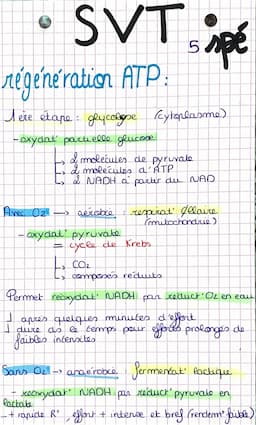 SVT
5 spé
régénération ATP :
1 ère étape : glycolyse (cytoplasme)
- oxydat° partielle glucose
↳ 2 molécules de pyruvate
↳ 2 molécules d'ATP
↳ 2 NADH à partir du NAD
Avec O2 → aérobie : respirat° (mitochondrie)
- oxydat° pyruvate
= cycle de Krebs
↳ CO2
↳ composés réduits
Permet réoxydat° NADH par réduct° O2 en eau
↓ après quelques minutes d'effort
↓ dure ds le temps pour efforts prolongés de
faibles intensités
Sans O2 → anaérobie fermentat° lactique
- réoxydat° NADH par réduct° pyruvate en
lactate
- + rapide R°, effort + intense et bref (rendem° faible)